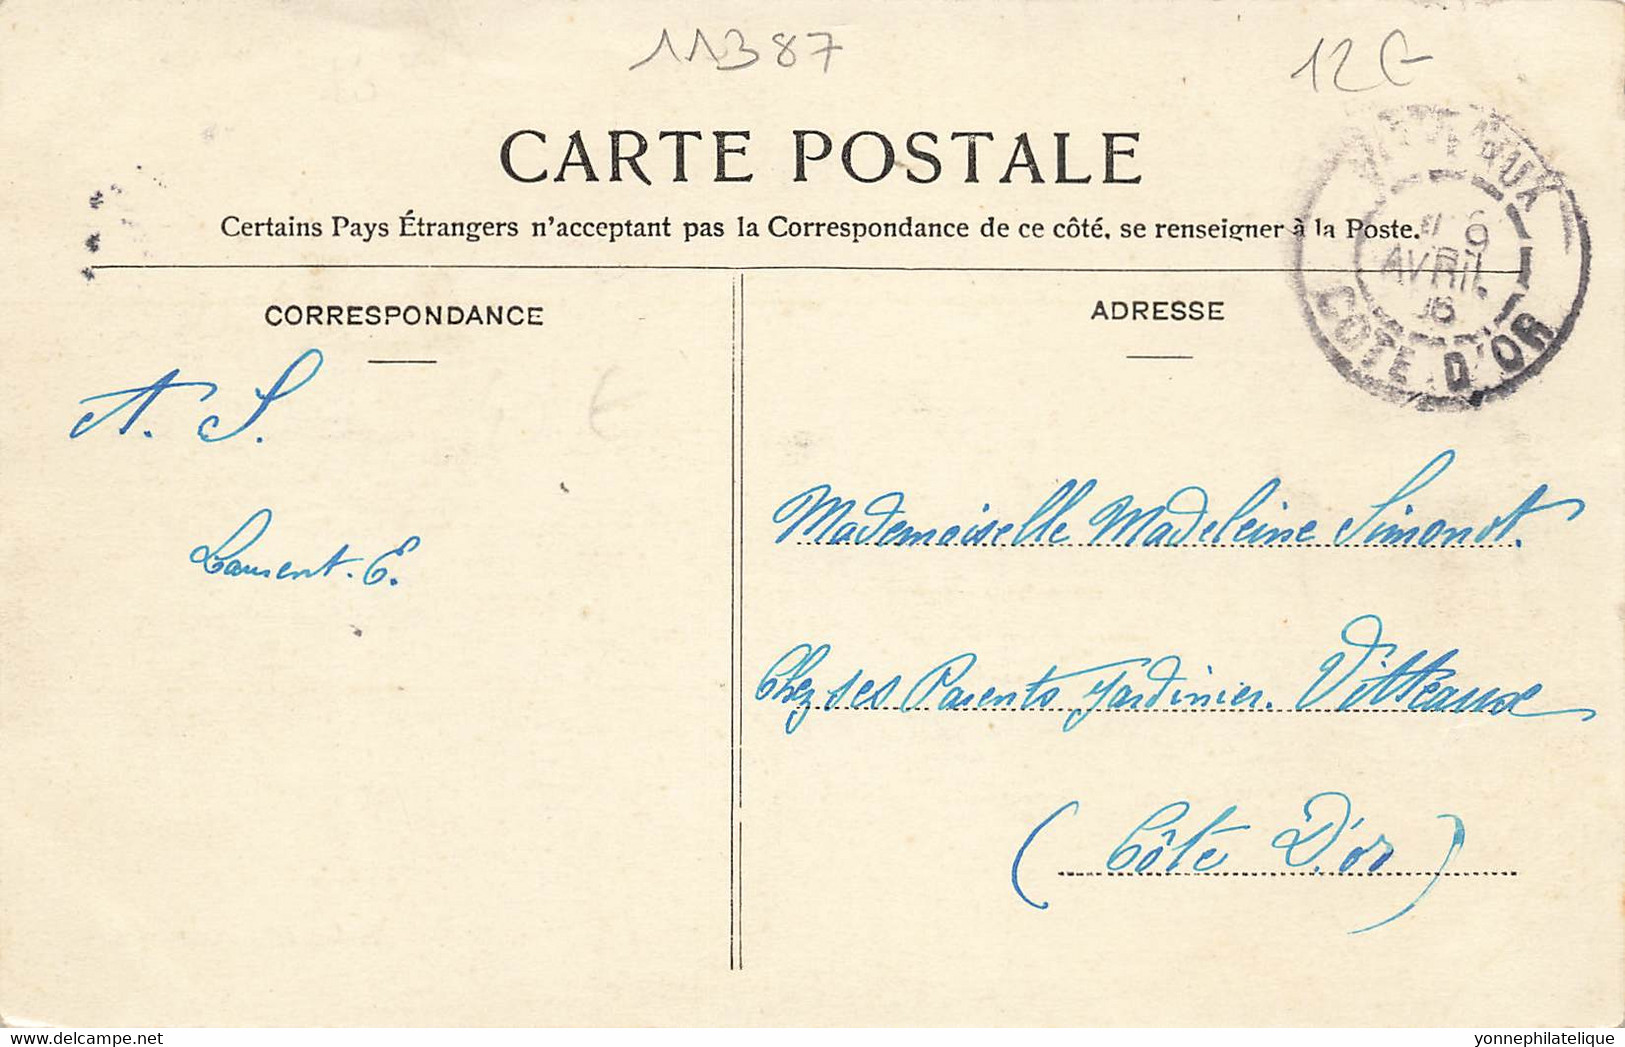 11387
12€
CARTE POSTALE
Certains Pays Étrangers n'acceptant pas la Correspondance de ce côté, se renseigner à la Poste.
VITTEAUX
9
AVRIL
06
COTE D'OR
CORRESPONDANCE
ADRESSE
A. S.
Laurent. E.
Mademoiselle Madeleine Simonot.
Chez ses Parents Jardinier. Vitteaux
(Côte D'or)
delcampe.net
yonnephilatelique